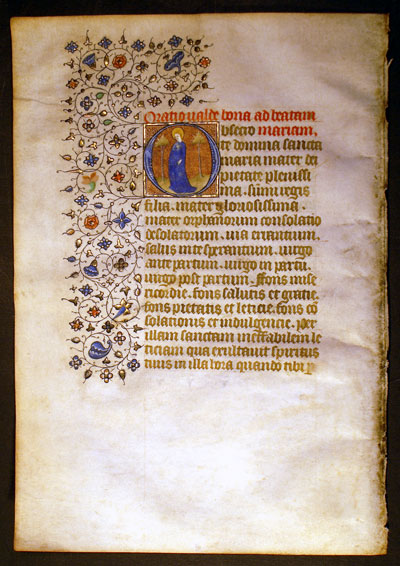 Oratio valde bona ad beatam
Obsecro mariam.
te domina sancta
maria mater dei
pietate plenissi
ma. Summi regis
filia. mater gloriosissima.
mater orphanorum consolatio
desolatorum. via errantium.
salus in te sperantium. virgo
ante partum. virgo in partu.
virgo post partum. Fons mise
ricordie. fons salutis et gratie.
fons pietatis et leticie. fons co
solationis et indulgencie. Per
illam sanctam ineffabilem le
ticiam qua exultauit spiritus
tuus in illa hora quando tibi p